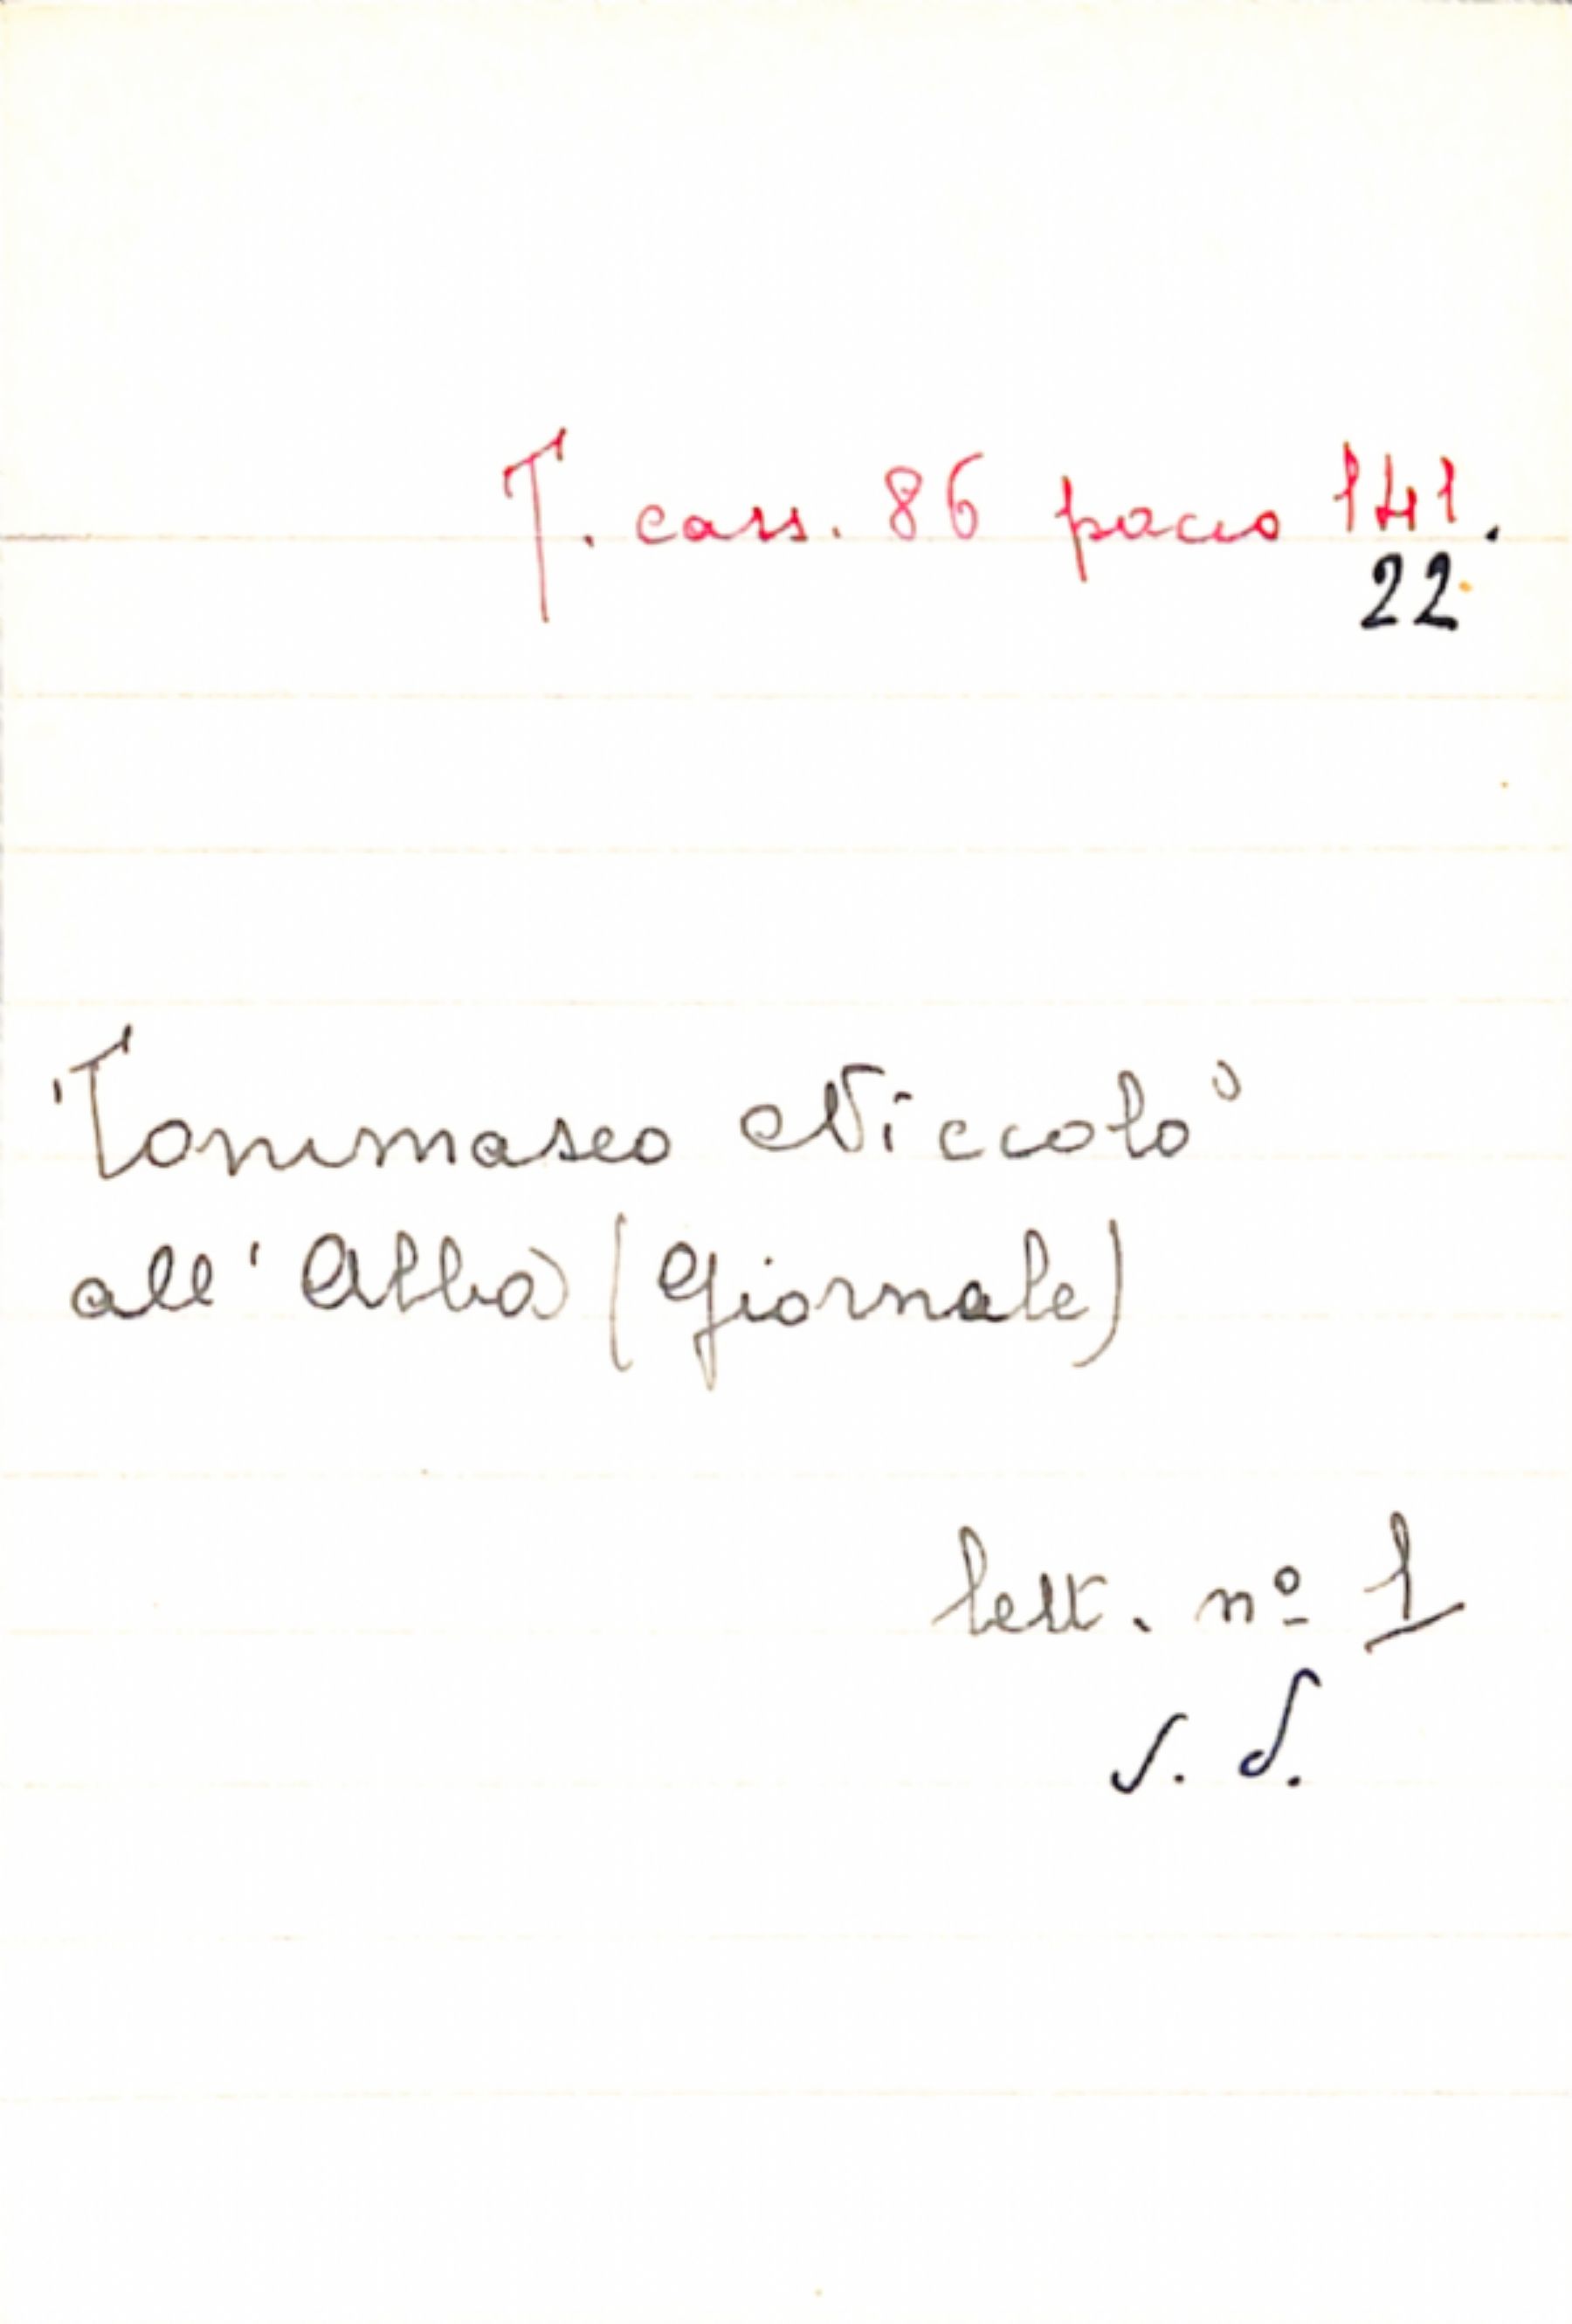 T. cass. 86 pacco 141.
22
Tommaseo Niccolò
all'Alba (Giornale)
lett. nº 1
s. d.